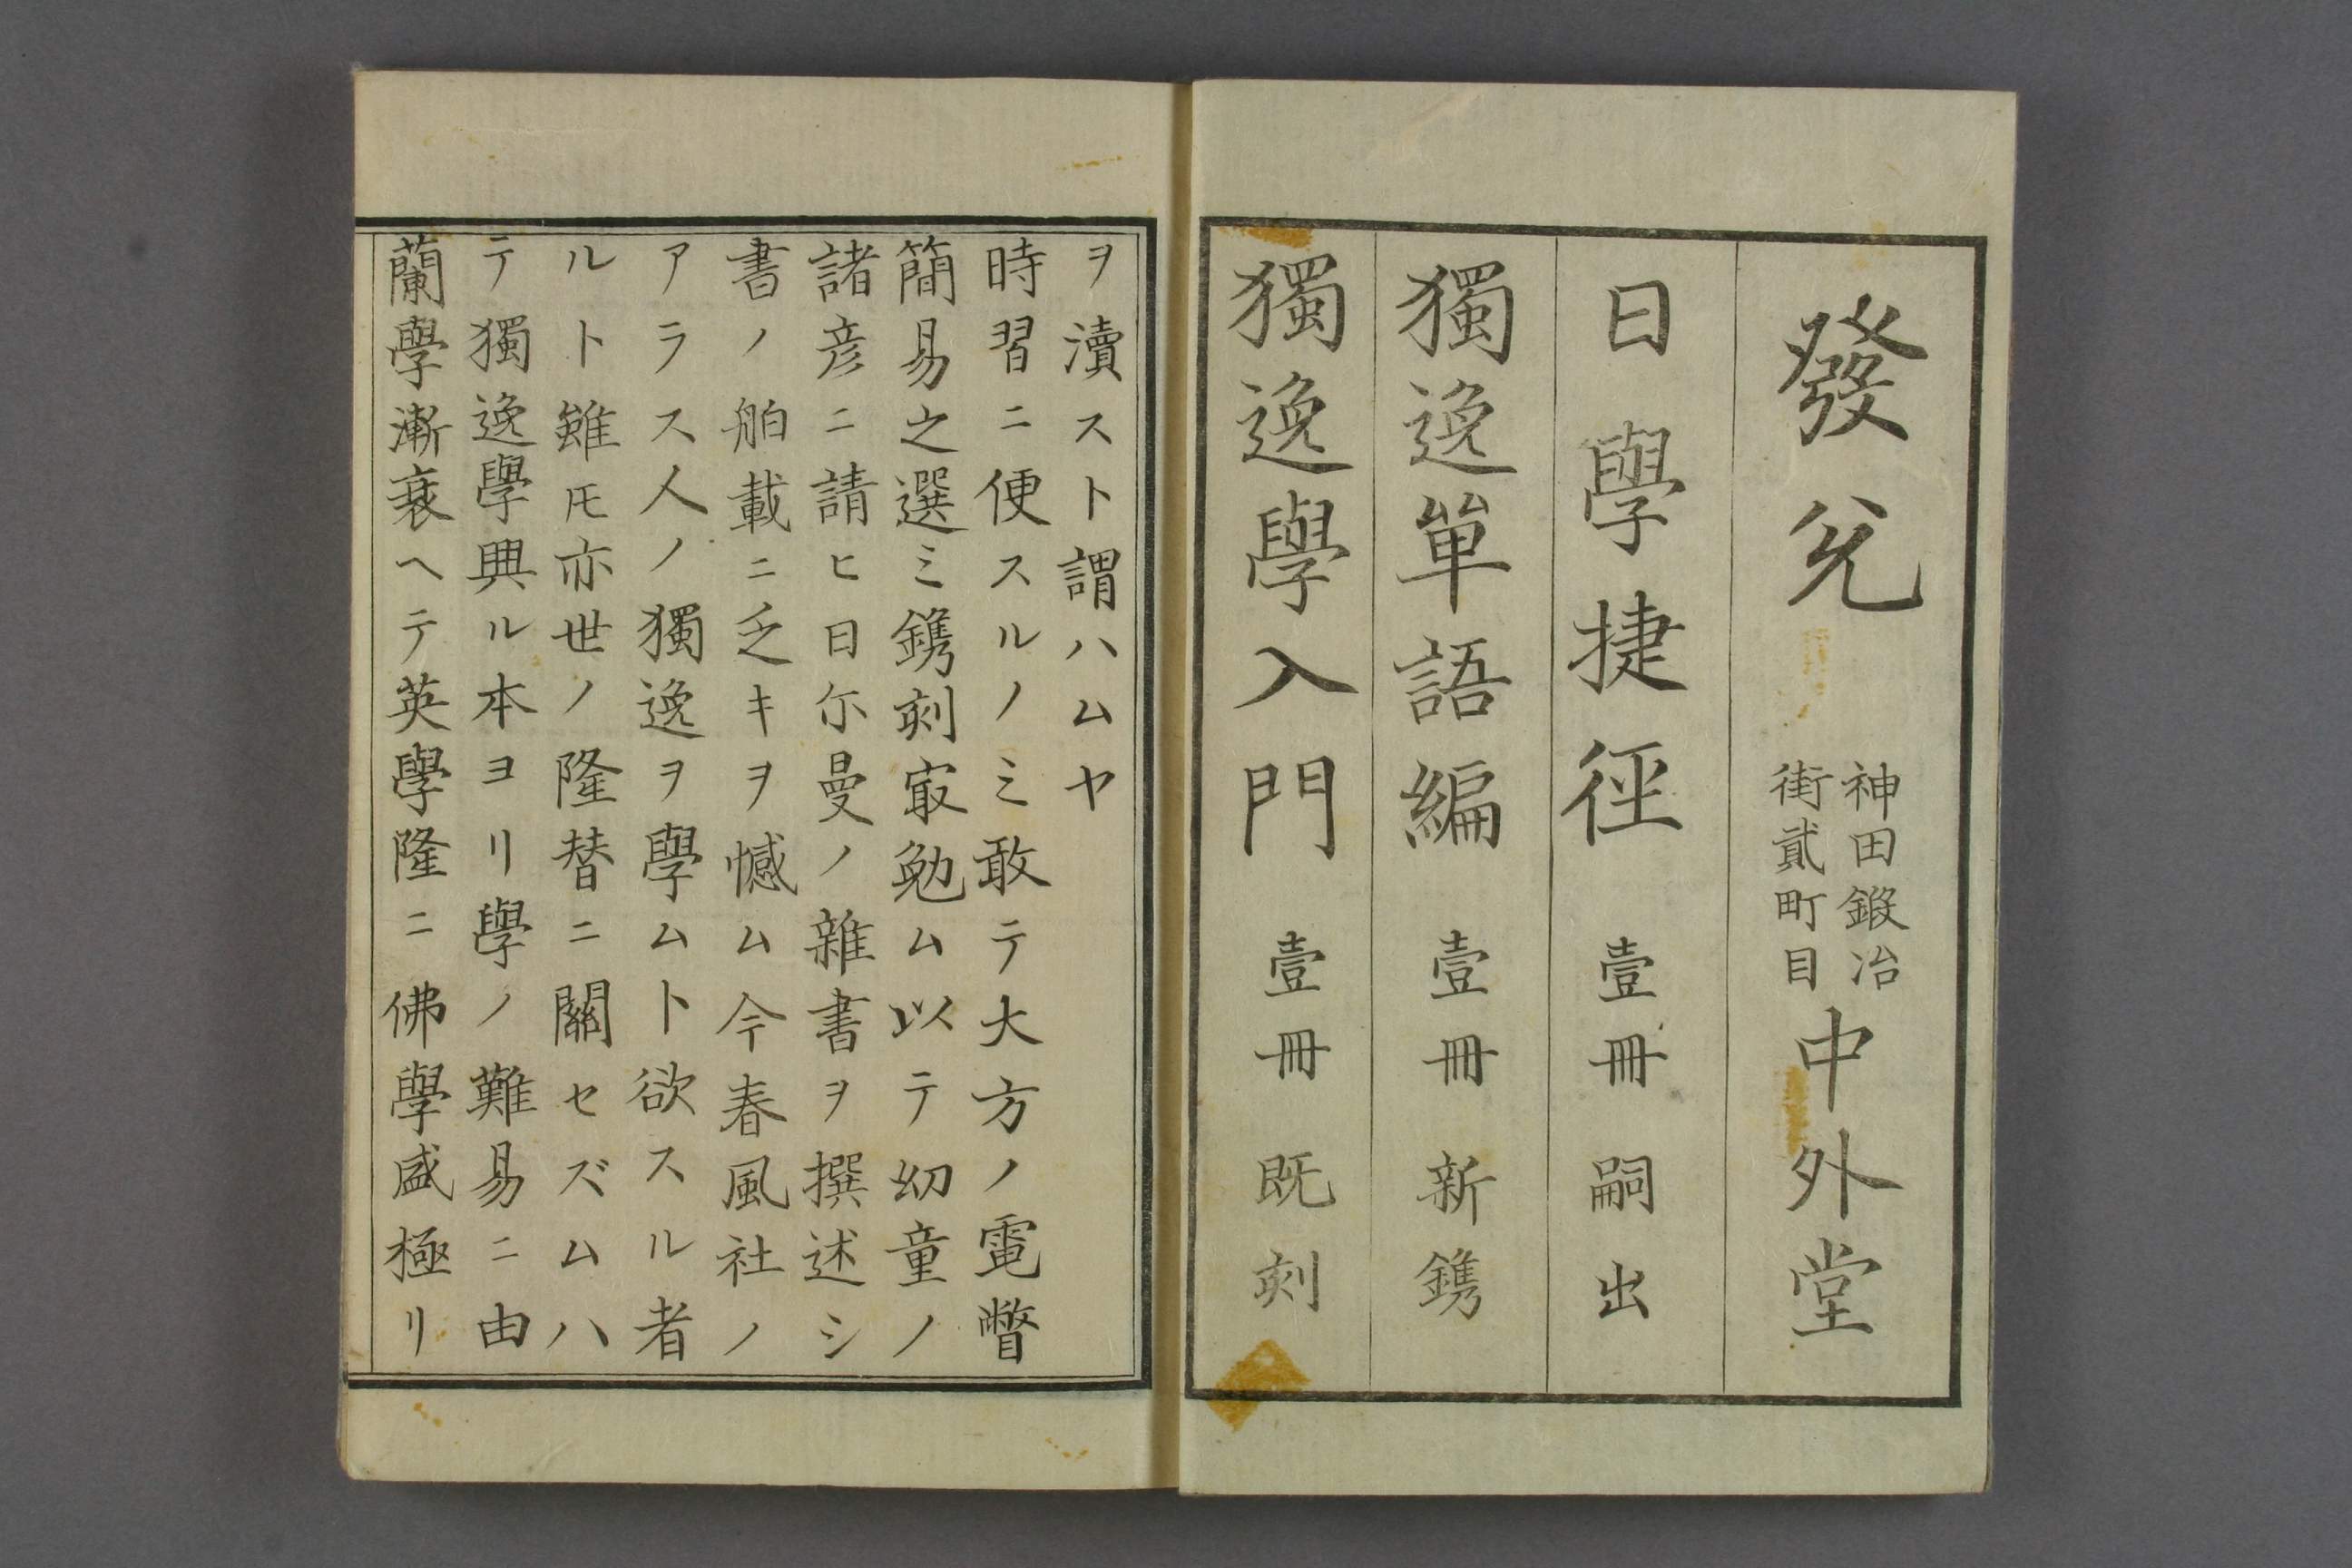 蘭學漸衰ヘテ英學隆ニ佛學盛極リ
テ獨逸學興ル本ヨリ學ノ難易ニ由
ルト雖𪜈亦世ノ隆替ニ關セズムハ
アラス人ノ獨逸ヲ學ムト欲スル者
書ノ舶載ニ乏キヲ憾ム今春風社ノ
諸彦ニ請ヒ日尓曼ノ雜書ヲ撰述シ
簡易之選ミ鐫刻㝡勉ム以テ幼童ノ
時習ニ便スルノミ敢テ大方ノ電瞥
ヲ瀆スト謂ハムヤ
獨逸學入門 壹冊 既刻
獨逸單語編 壹冊 新鐫
日學捷徑 壹冊 嗣出
發兌
神田鍛冶
街貳町目
中外堂